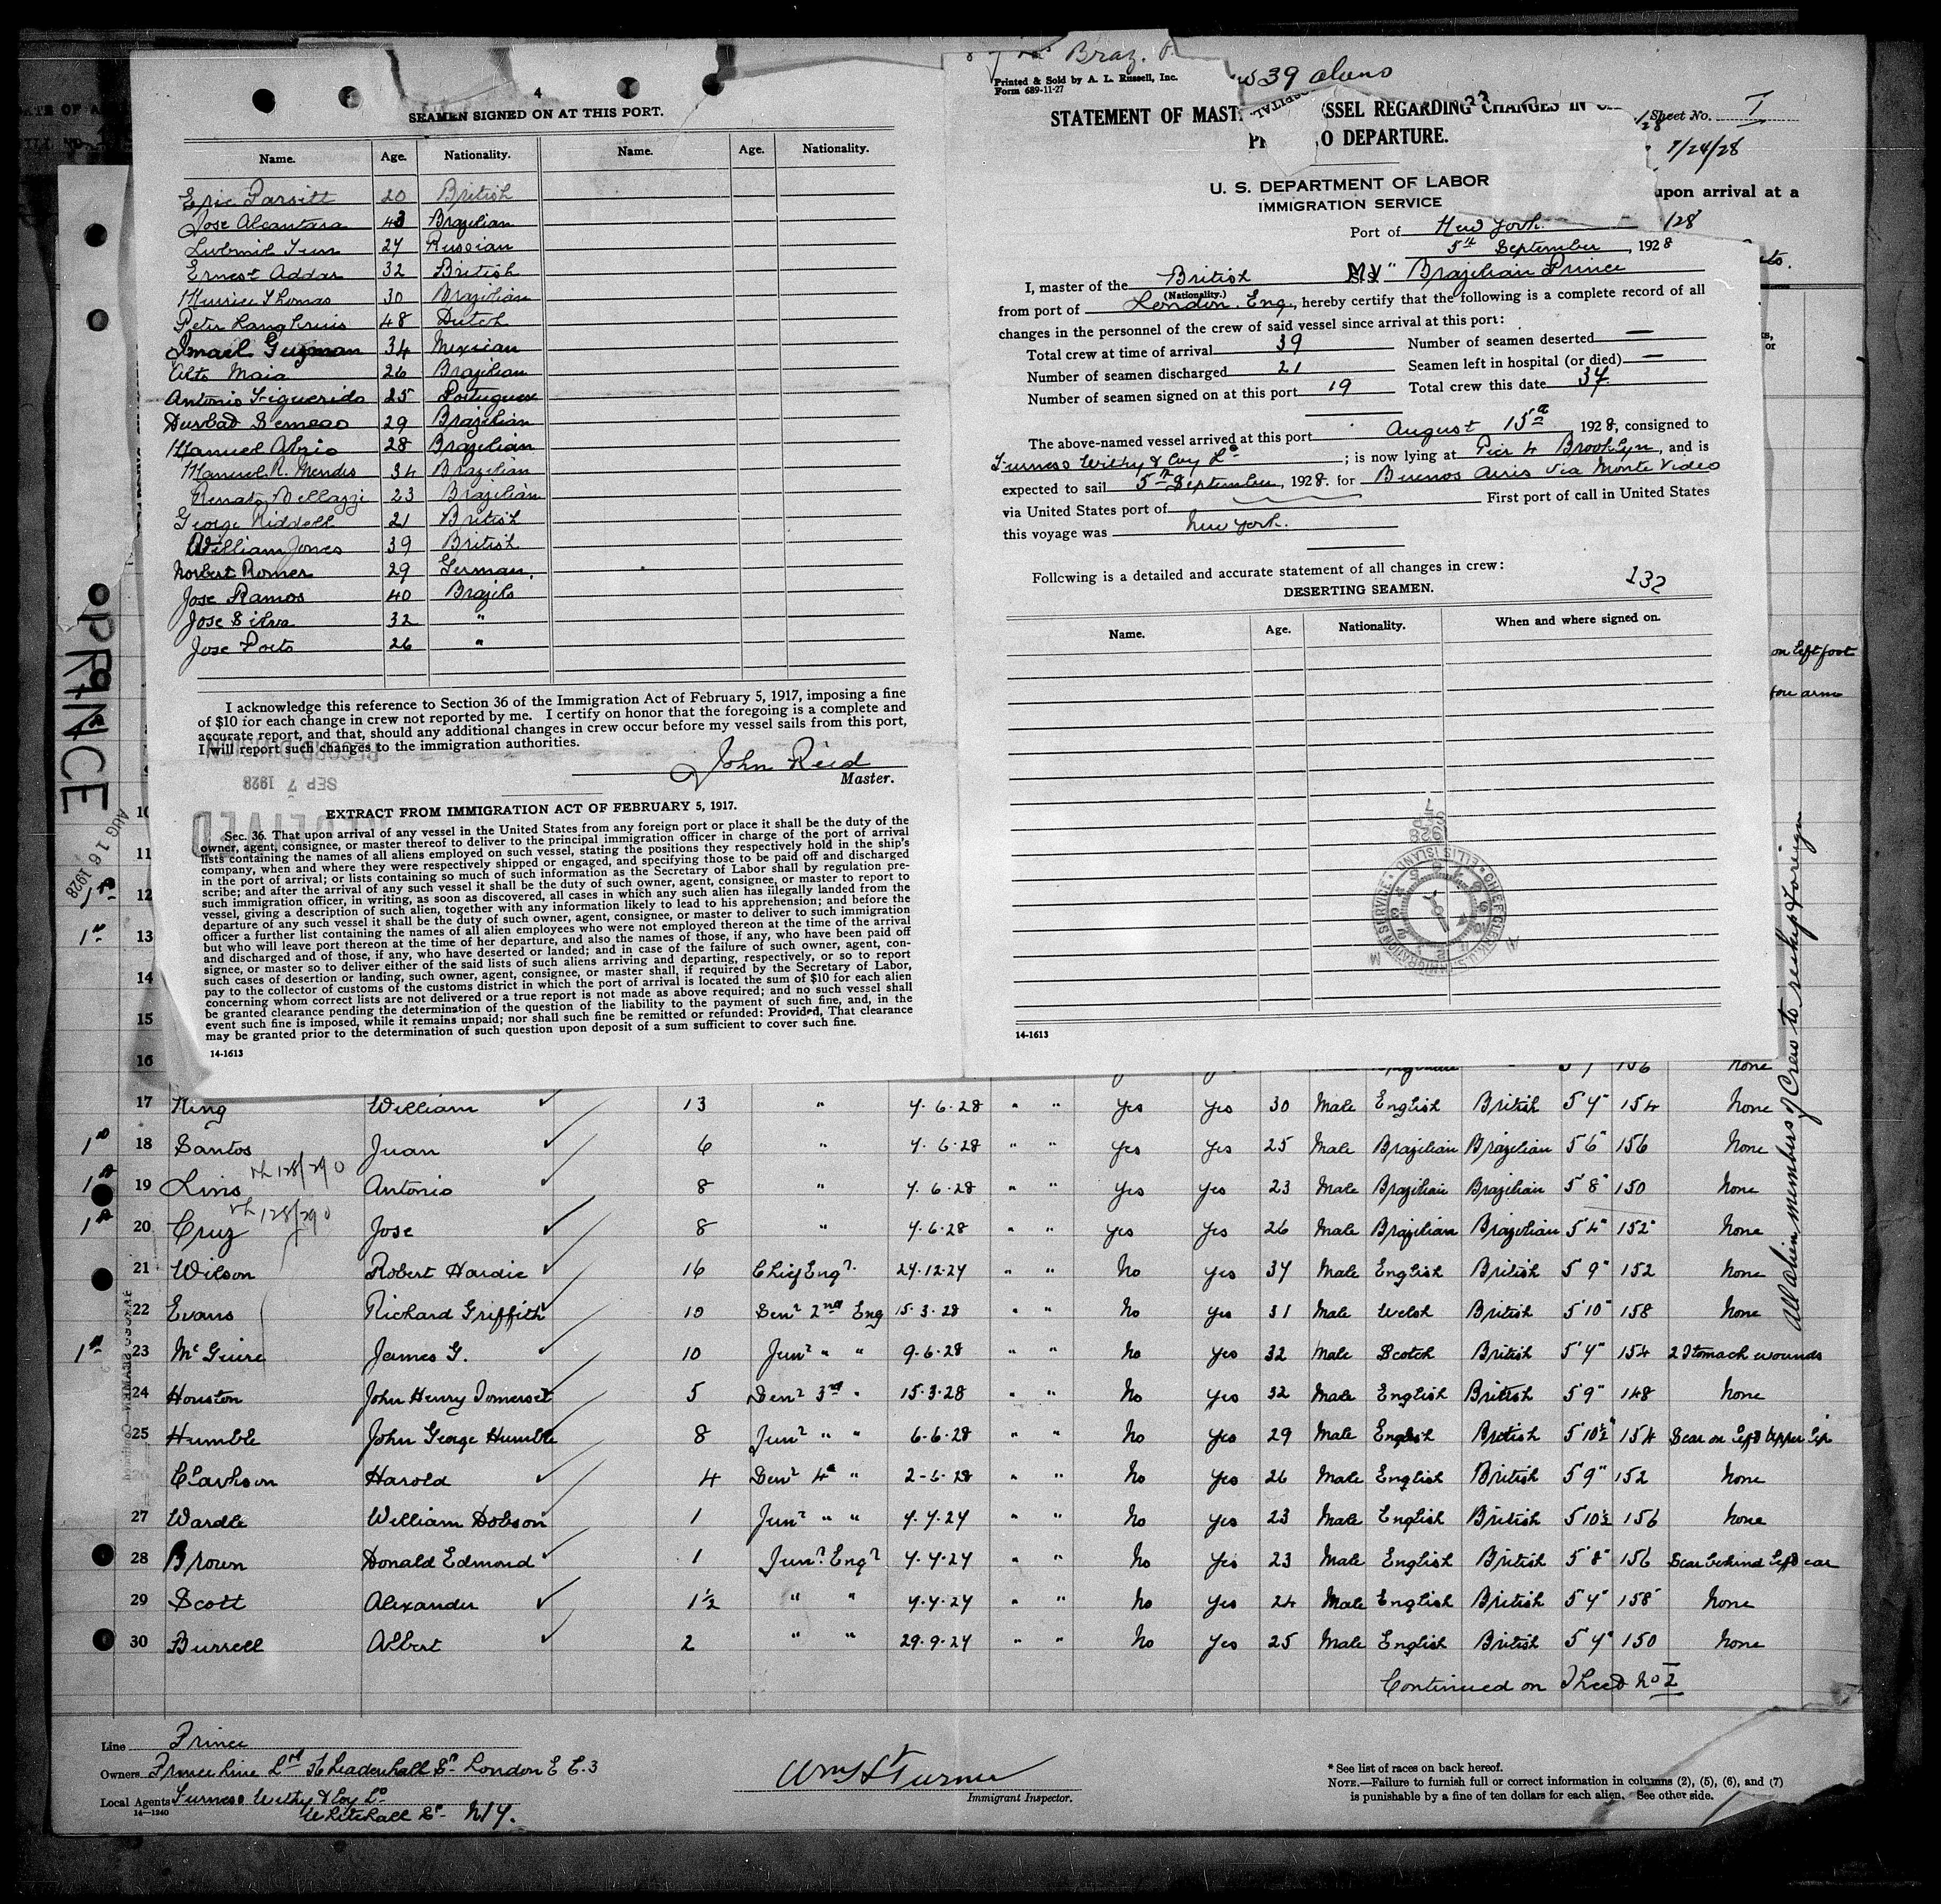 4
SEAMEN SIGNED ON AT THIS PORT.
Name. Age. Nationality. Name. Age. Nationality.
Eric Parsitt 20 British
Jose Alcantara 43 Brazilian
27 Russian
Ernest Addar 32 British
Thomas 30 Brazilian
Peter 48 Dutch
Ismael Guzman 34 Mexican
Alto Maia 26 Brazilian
Antonio Figuerido 25 Portuguese
29 Brazilian
Manuel 28 Brazilian
Manuel R. Mendes 34 Brazilian
Renato Bellazzi 23 Brazilian
George Riddell 21 British
William Jones 39 British
Norbert Romer 29 German.
Jose Ramos 40 Brazils
Jose Silva 32 "
Jose Porto 26 "
I acknowledge this reference to Section 36 of the Immigration Act of February 5, 1917, imposing a fine
of $10 for each change in crew not reported by me. I certify on honor that the foregoing is a complete and
accurate report, and that, should any additional changes in crew occur before my vessel sails from this port,
I will report such changes to the immigration authorities.
RECORD DIVISION
SEP 7 1928
RECEIVED
John Reid
Master.
EXTRACT FROM IMMIGRATION ACT OF FEBRUARY 5, 1917.
Sec. 36. That upon arrival of any vessel in the United States from any foreign port or place it shall be the duty of the
owner, agent, consignee, or master thereof to deliver to the principal immigration officer in charge of the port of arrival
lists containing the names of all aliens employed on such vessel, stating the positions they respectively hold in the ship's
company, when and where they were respectively shipped or engaged, and specifying those to be paid off and discharged
in the port of arrival; or lists containing so much of such information as the Secretary of Labor shall by regulation pre-
scribe; and after the arrival of any such vessel it shall be the duty of such owner, agent, consignee, or master to report to
such immigration officer, in writing, as soon as discovered, all cases in which any such alien has illegally landed from the
vessel, giving a description of such alien, together with any information likely to lead to his apprehension; and before the
departure of any such vessel it shall be the duty of such owner, agent, consignee, or master to deliver to such immigration
officer a further list containing the names of all alien employees who were not employed thereon at the time of the arrival
but who will leave port thereon at the time of her departure, and also the names of those, if any, who have been paid off
and discharged and of those, if any, who have deserted or landed; and in case of the failure of such owner, agent, con-
signee, or master so to deliver either of the said lists of such aliens arriving and departing, respectively, or so to report
such cases of desertion or landing, such owner, agent, consignee, or master shall, if required by the Secretary of Labor,
pay to the collector of customs of the customs district in which the port of arrival is located the sum of $10 for each alien
concerning whom correct lists are not delivered or a true report is not made as above required; and no such vessel shall
be granted clearance pending the determination of the question of the liability to the payment of such fine, and, in the
event such fine is imposed, while it remains unpaid; nor shall such fine be remitted or refunded: Provided, That clearance
may be granted prior to the determination of such question upon deposit of a sum sufficient to cover such fine.
14-1613
Braz.
39 aliens
Printed & Sold by A. L. Russell, Inc.
Form 689-11-27
STATEMENT OF MAST SSEL REGARDING CHANGES IN
O DEPARTURE.
Sheet No. I
7/24/28
upon arrival at a
U. S. DEPARTMENT OF LABOR
IMMIGRATION SERVICE
Port of New York.
5th September, 1928
I, master of the British MV "Brazilian Prince
(Nationality.)
from port of London. Eng., hereby certify that the following is a complete record of all
changes in the personnel of the crew of said vessel since arrival at this port:
Total crew at time of arrival 39 Number of seamen deserted —
Number of seamen discharged 21 Seamen left in hospital (or died) —
Number of seamen signed on at this port 19 Total crew this date 37
The above-named vessel arrived at this port August 15th 1928, consigned to
Furness Withy & Coy Ld; is now lying at Pier 4 Brooklyn, and is
expected to sail 5th September, 1928. for Buenos Aires via Monte Video
via United States port of First port of call in United States
this voyage was New York.
Following is a detailed and accurate statement of all changes in crew:
132
DESERTING SEAMEN.
Name. Age. Nationality. When and where signed on.
SEP 7 1928
CHIEF CLERK U.S. IMMIGRATION SERVICE ELLIS ISLAND
14-1613
PRINCE
AUG 16 1928
on left foot
fore arm
All alien members of Crew to reship foreign
10
11
12
13
14
15
16 5 7 156 None
17 King William 13 " 7.6.28 " " Yes Yes 30 Male English British 5 7" 154 None
18 Santos Juan 6 " 7.6.28 " " Yes Yes 25 Male Brazilian Brazilian 5 6" 156 None
19 Lins Antonio 8 " 7.6.28 " " Yes Yes 23 Male Brazilian Brazilian 5 8" 150 None
20 Cruz Jose 8 " 7.6.28 " " Yes Yes 26 Male Brazilian Brazilian 5 4" 152 None
21 Wilson Robert Hardie 16 Chief Engr. 27.12.27 " " No Yes 37 Male English British 5 9" 152 None
22 Evans Richard Griffith 10 Senr 2nd Eng 15.3.28 " " No Yes 31 Male Welsh British 5'10" 158 None
23 McGuire James G. 10 Junr " " 9.6.28 " " No Yes 32 Male Scotch British 5'7" 154 2 Stomach wounds
24 Houston John Henry Somerset 5 Senr 3rd " 15.3.28 " " No Yes 32 Male English British 5'9" 148 None
25 Humble John George Humble 8 Junr " " 6.6.28 " " No Yes 29 Male English British 5'10½" 154 Scar on left upper lip
Clarkson Harold 4 Senr 4th " 2-6.28 " " No Yes 26 Male English British 5'9" 152 None
27 Wardle William Dobson 1 Junr " " 7.7.27 " " No Yes 23 Male English British 5 10½ 156 None
28 Brown Donald Edmond 1 Junr. Engr 7.7.27 " " No Yes 23 Male English British 5'8" 156 Scar behind left ear
29 Scott Alexander 1½ " " 7.7.27 " " No Yes 24 Male English British 5'7" 158 None
30 Burrell Albert 2 " " 29.9.27 " " No Yes 25 Male English British 5'7" 150 None
Continued on Sheet No 2
Line Prince
Owners Prince Line Ltd 56 Leadenhall St. London E C.3
Local Agents Furness Withy & Coy Ld
14-1240
Whitehall St. N.Y.
Immigrant Inspector.
* See list of races on back hereof.
NOTE.—Failure to furnish full or correct information in columns (2), (5), (6), and (7)
is punishable by a fine of ten dollars for each alien. See other side.